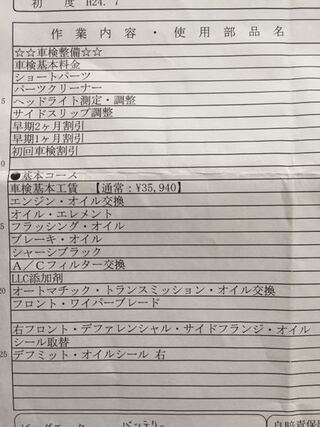 初 度 H24. 7
作 業 内 容 ・ 使 用 部 品 名
☆☆車検整備☆☆
車検基本料金
ショートパーツ
パーツクリーナー
5 ヘッドライト測定・調整
サイドスリップ調整
早期2ヶ月割引
早期1ヶ月割引
初回車検割引
0
●基本コース
車検基本工賃 【通常:¥35,940】
エンジン・オイル交換
オイル・エレメント
5 フラッシング・オイル
ブレーキ・オイル
シャーシブラック
A/Cフィルター交換
LLC添加剤
20 オートマチック・トランスミッション・オイル交換
フロント・ワイパーブレード
右フロント・デファレンシャル・サイドフランジ・オイル
シール取替
25 デフミット・オイルシール 右
バッテリー
自賠責保